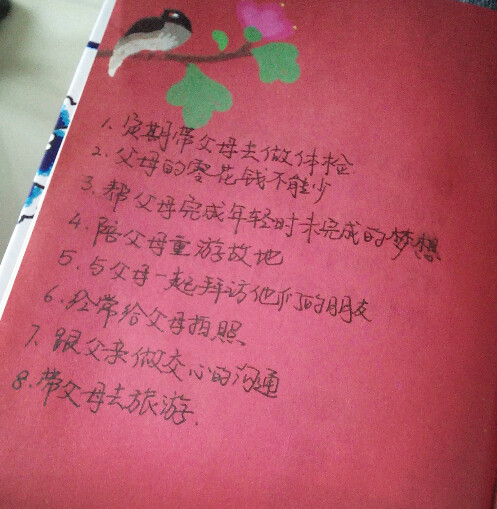 1. 定期带父母去做体检
2. 父母的零花钱不能少
3. 帮父母完成年轻时未完成的梦想
4. 陪父母重游故地
5. 与父母一起拜访他们的朋友
6. 经常给父母拍照
7. 跟父亲做交心的沟通
8. 带父母去旅游.